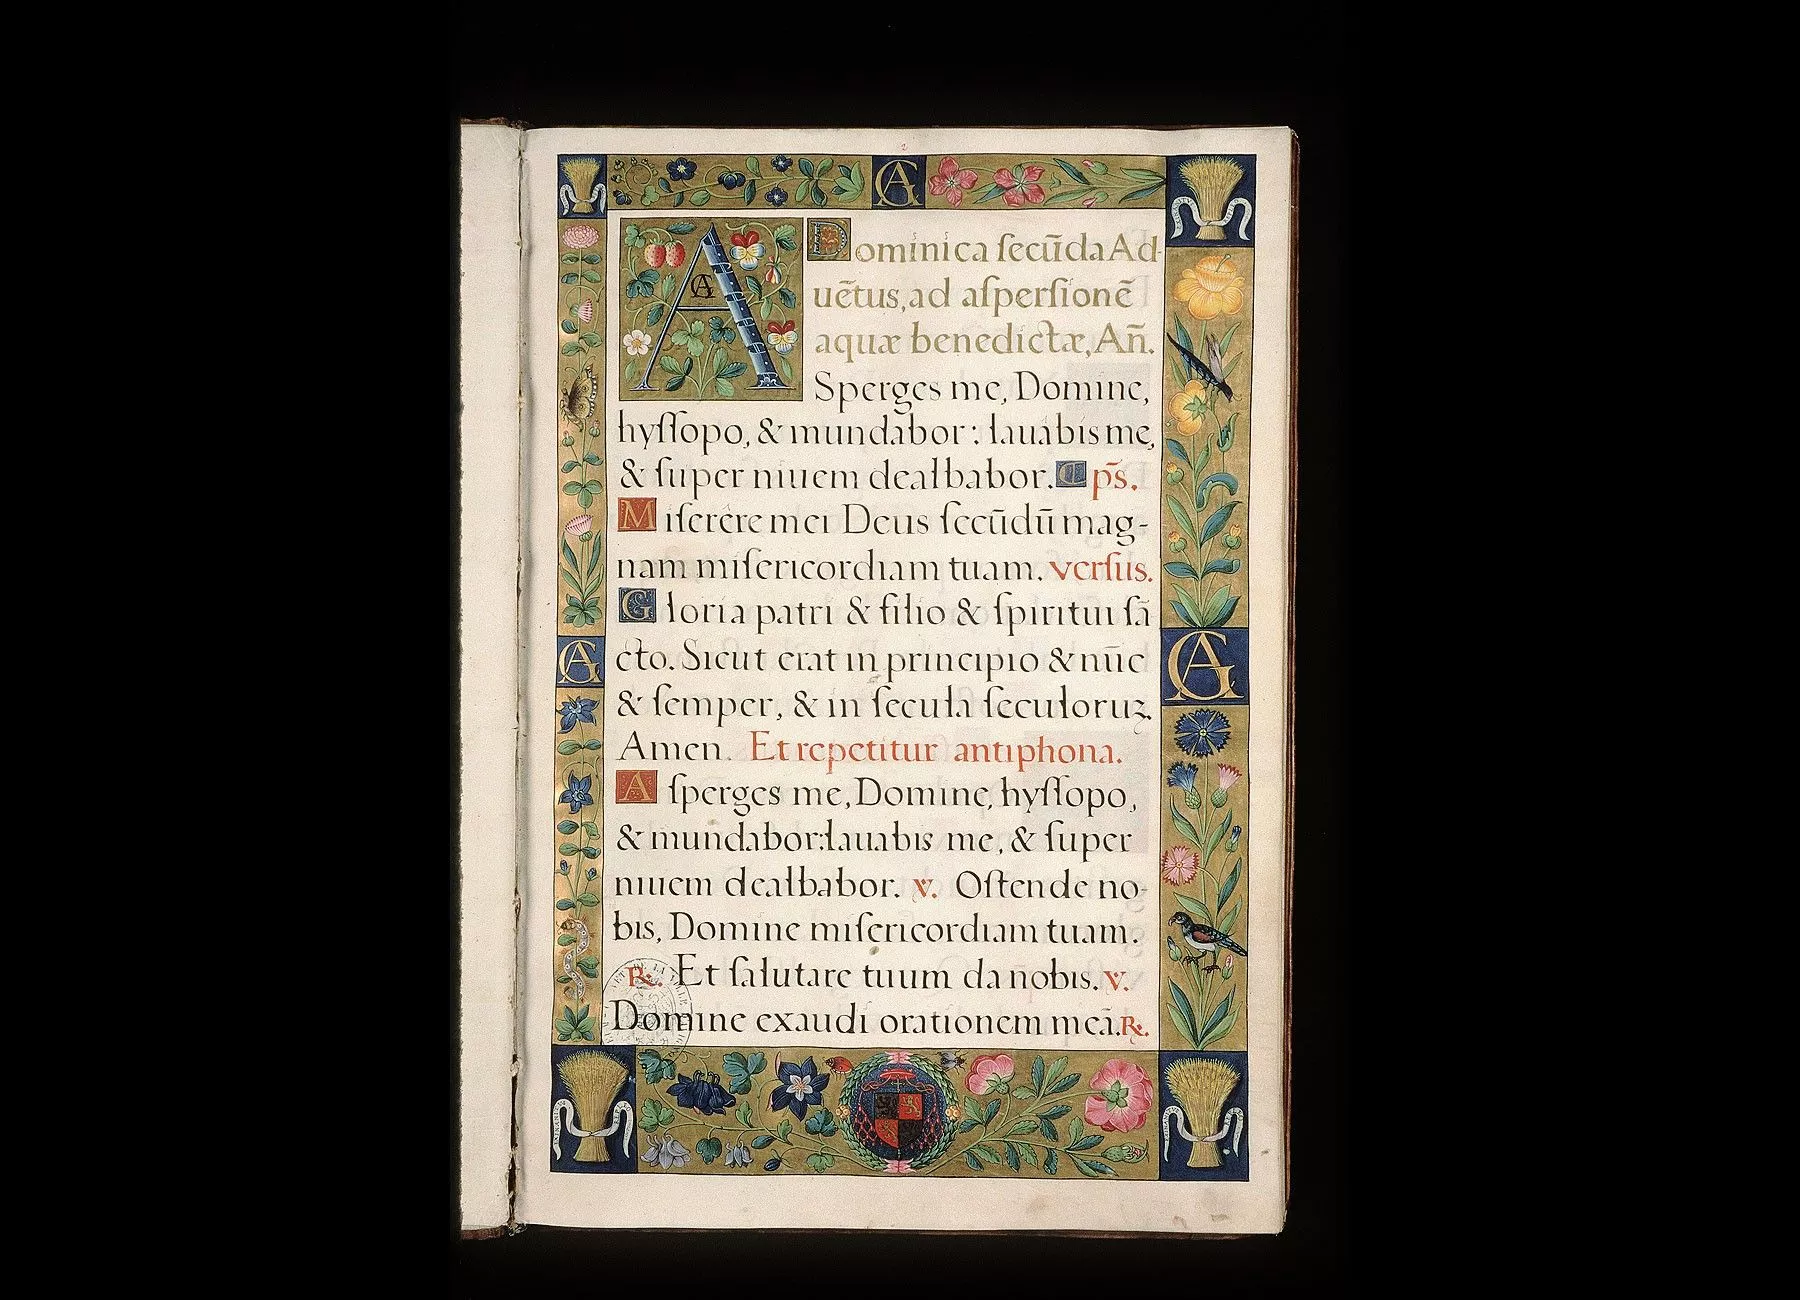 2
GA
Dominica ſecūda Ad-
uētus, ad aſperſionē
aquæ benedictæ, An̄.
A
GA
Sperges me, Domine,
hyſſopo, & mundabor: lauabis me,
& ſuper niuem dealbabor. ps̄.
Miſerere mei Deus ſecūdū mag-
nam miſericordiam tuam. verſus.
Gloria patri & filio & ſpiritui ſā
cto. Sicut erat in principio & nūc
& ſemper, & in ſecula ſeculoruꝫ.
Amen. Et repetitur antiphona.
Aſperges me, Domine, hyſſopo,
& mundabor: lauabis me, & ſuper
niuem dealbabor. v. Oſtende no-
bis, Domine miſericordiam tuam.
℟. Et ſalutare tuum da nobis. v.
Domine exaudi orationem meā. ℟.
GA
GA